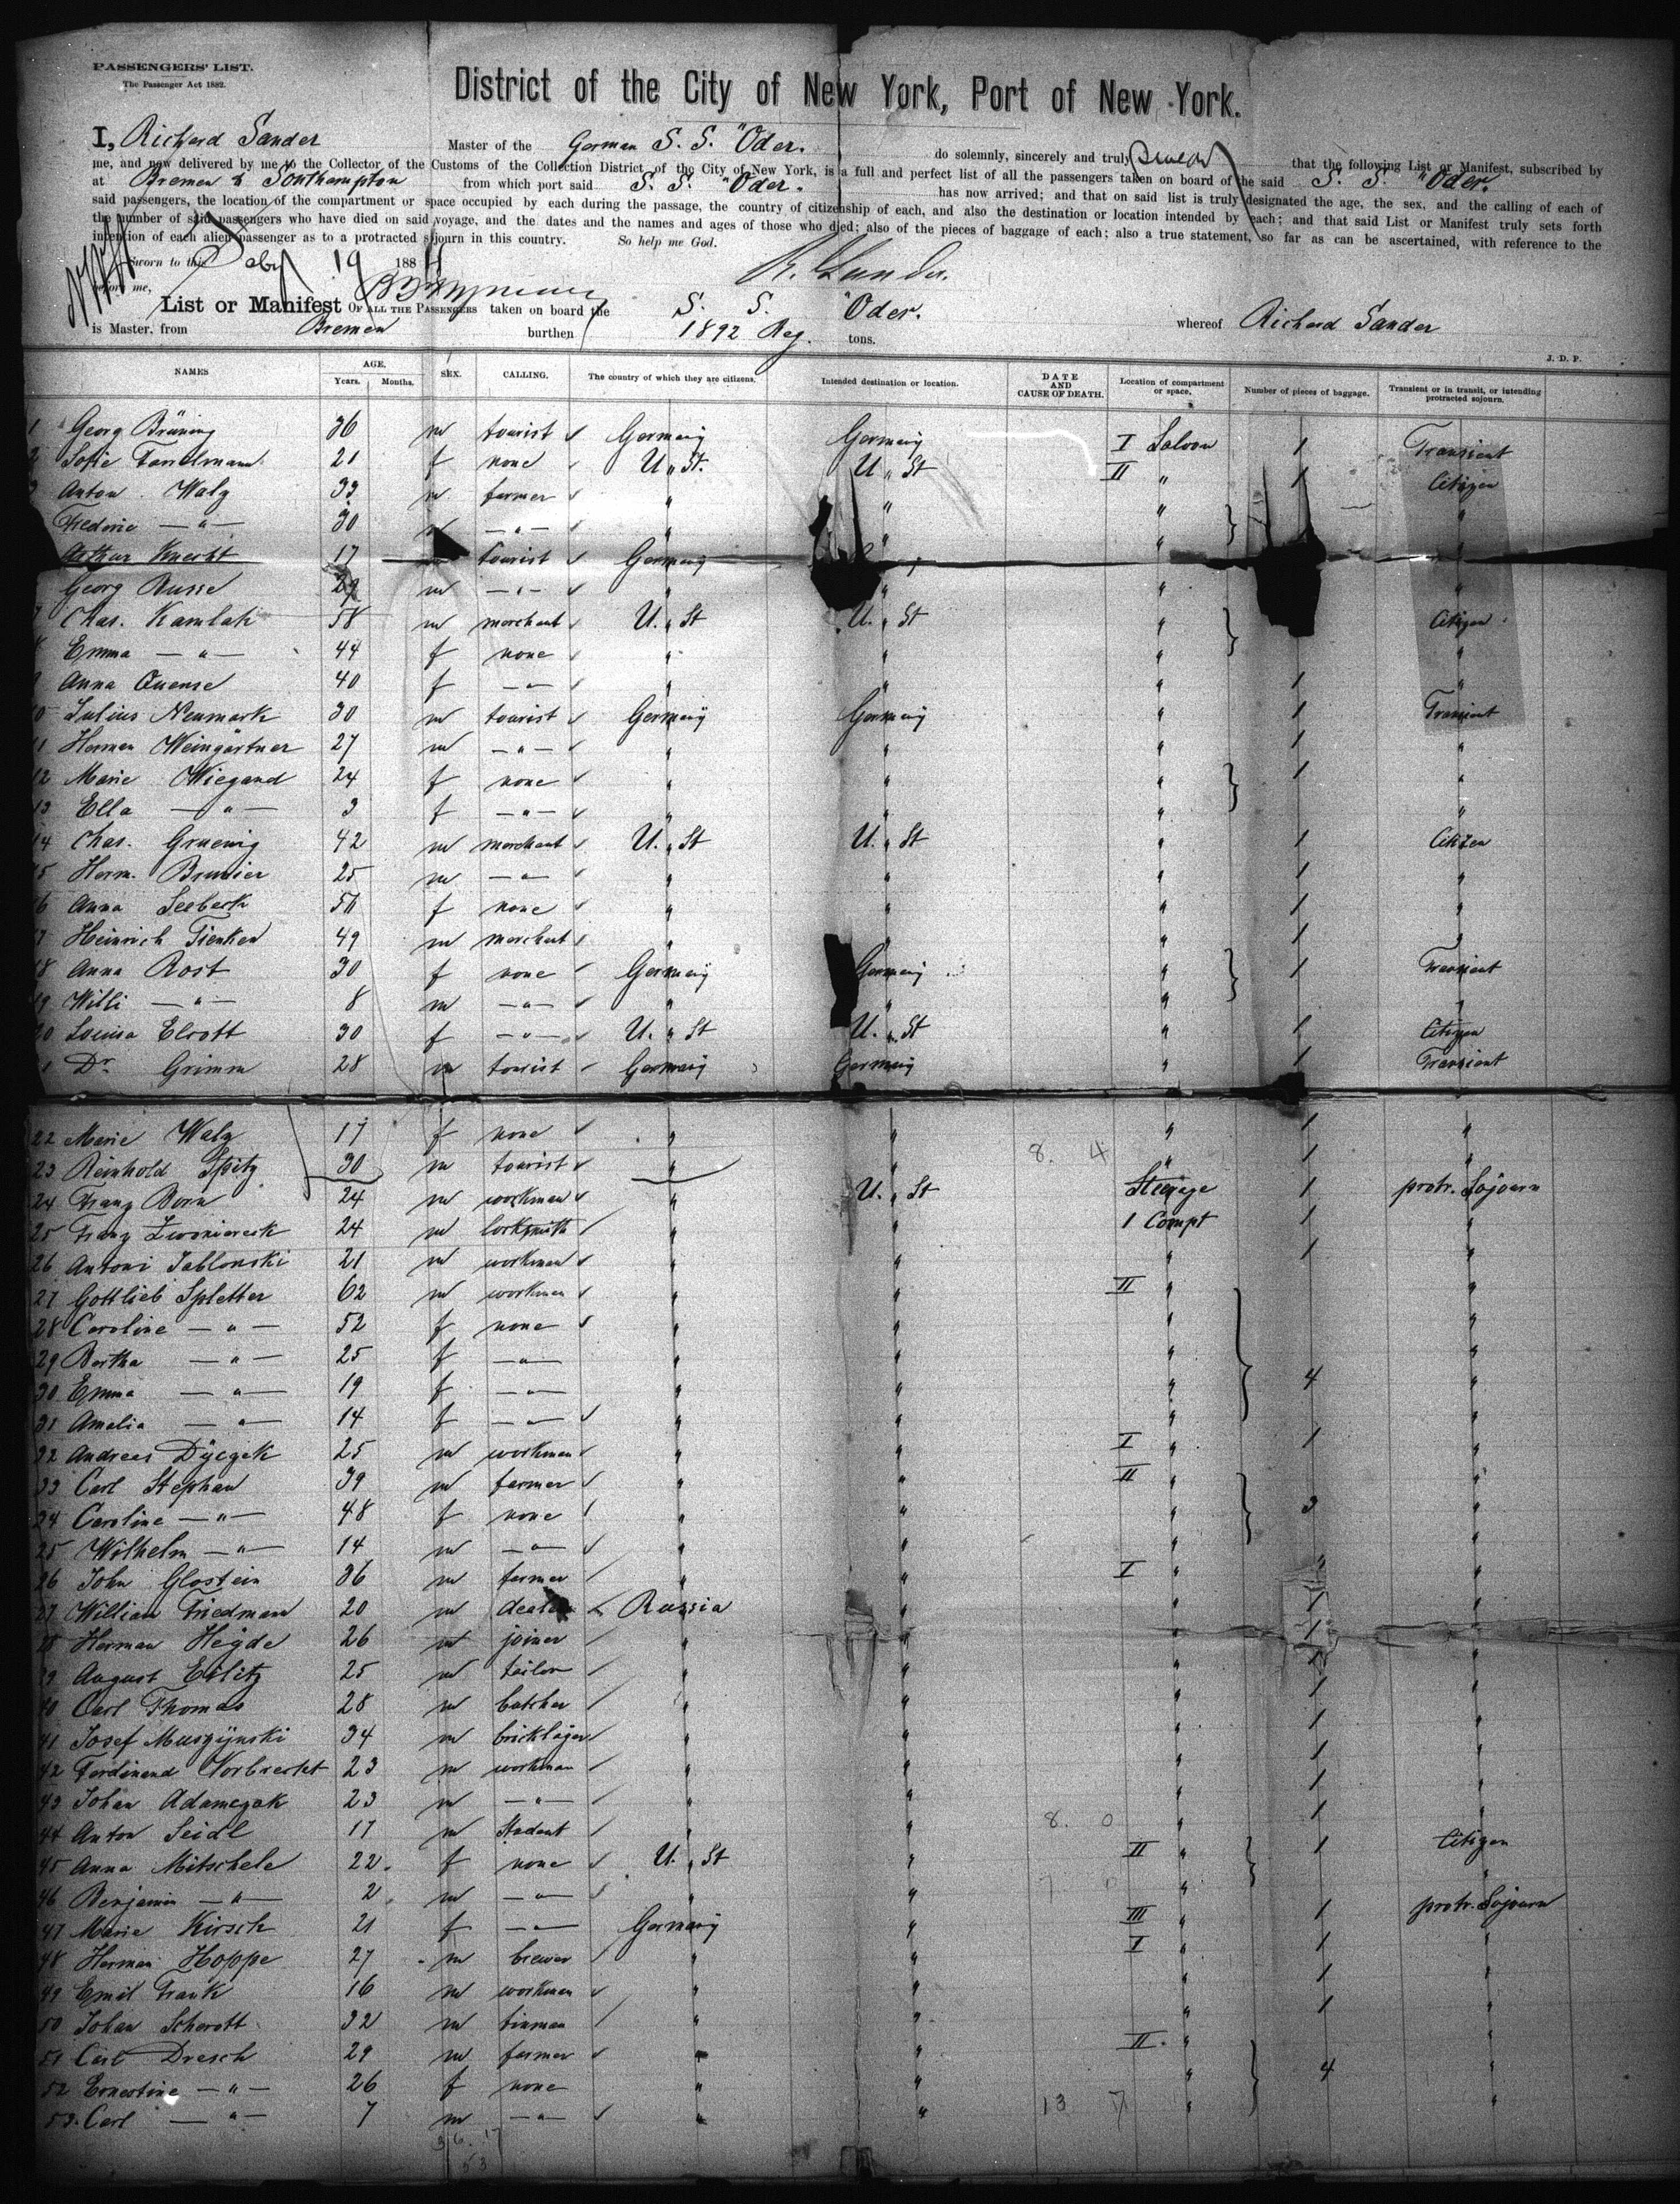 PASSENGERS' LIST.
The Passenger Act 1882.
District of the City of New York, Port of New York.
I, Richard Sander Master of the German S. S. "Oder. do solemnly, sincerely and truly that the following List or Manifest, subscribed by
me, and now delivered by me to the Collector of the Customs of the Collection District of the City of New York, is a full and perfect list of all the passengers taken on board of the said S. S. "Oder.
at Bremen & Southampton from which port said S. S. "Oder. has now arrived; and that on said list is truly designated the age, the sex, and the calling of each of
said passengers, the location of the compartment or space occupied by each during the passage, the country of citizenship of each, and also the destination or location intended by each; and that said List or Manifest truly sets forth
the number of said passengers who have died on said voyage, and the dates and the names and ages of those who died; also of the pieces of baggage of each; also a true statement, so far as can be ascertained, with reference to the
intention of each alien passenger as to a protracted sojourn in this country. So help me God.
Sworn to this 19 1884 R. Sander.
before me,
List or Manifest OF ALL THE PASSENGERS taken on board the S. S. "Oder. whereof Richard Sander
is Master, from Bremen burthen 1892 Reg. tons.
J. D. P.
NAMES AGE. Years. Months. SEX. CALLING. The country of which they are citizens. Intended destination or location. DATE AND CAUSE OF DEATH. Location of compartment or space. Number of pieces of baggage. Transient or in transit, or intending protracted sojourn.
1 Georg Brüning 36 m tourist Germany Germany I Saloon 1 Transient
2 Sofie 21 f none U. St. U. St II " 1 Citizen
3 Anton Walz 33 m farmer " " " "
Frederic —"— 30 —"— " " "
Arthur Knecht 17 tourist Germany "
Georg Busse 29 m —"— " " " "
7 Chas. Kamlah 58 m merchant U. St U. St " Citizen
8 Emma —"— 44 f none " " " "
9 Anna Quense 40 f —"— " " " 1 "
10 Julius Neumark 30 m tourist Germany Germany " 1 Transient
11 Herman Weingärtner 27 m —"— " " " 1 "
12 Marie Wiegand 24 f none " " " 1 "
13 Ella —"— 3 f —"— " " " "
14 Chas. Gruenig 42 m merchant U. St U. St " 1 Citizen
15 Herm. Brunier 25 m —"— " " " 1 "
16 Anna Seebeck 56 f none " " " 1 "
17 Heinrich Tienken 49 m merchant " " " 1 "
18 Anna Rost 30 f none Germany Germany " 1 Transient
19 Willi —"— 8 m —"— " " " "
20 Louisa Elrott 30 f —"— U. St U. St " 1 Citizen
21 Dr. Grimm 28 m tourist Germany Germany " 1 Transient
22 Marie Walz 17 f none " " 8. 4 " 1 "
23 Reinhold Spitz 30 m tourist " " " 1 "
24 Franz Born 24 m workman " U. St Steerage 1 protr. Sojourn
25 Franz 24 m locksmith " " 1 Compt 1 "
26 Antoni Jablonski 21 m workman " " " 1 "
27 Gottlieb Spletter 62 m workman " " II " "
28 Caroline —"— 52 f none " " " "
29 Bertha —"— 25 f —"— " " " "
30 Emma —"— 19 f —"— " " " 4 "
31 Amalia —"— 14 f —"— " " " "
32 Andreas Dyczek 25 m workman " " I " 1 "
33 Carl Stephan 39 m farmer " " II " "
34 Caroline —"— 48 f none " " " 3 "
35 Wilhelm —"— 14 m —"— " " " "
36 John Glostein 36 m farmer " " I " 1 "
37 William Friedmann 20 m dealer Russia " " 1 "
38 Herman Heyde 26 m joiner " " " 1 "
39 August Erlitz 25 m tailor " " " 1 "
40 Carl Thomas 28 m butcher " " " 1 "
41 Josef Muszynski 34 m bricklayer " " " 1 "
42 Ferdinand Vorbrecht 23 m workman " " " 1 "
43 Johan Adamczak 23 m —"— " " " 1 "
44 Anton Seidl 17 m Student " " 8. 0 " 1 "
45 Anna Mitschele 22 f none U. St " II " 1 Citizen
46 Benjamin —"— 2 m —"— " " 7 0 " "
47 Marie Kirsch 21 f —"— Germany " III " 1 protr. Sojourn
48 Herman Hoppe 27 m brewer " " I " 1 "
49 Emil Frank 16 m workman " " " 1 "
50 Johan Schorott 32 m tinman " " " 1 "
51 Carl Dresch 29 m farmer " " II " "
52 Ernestine —"— 26 f none " " " 4 "
53. Carl —"— 7 m —"— " " 13 7 " "
36. 17
53